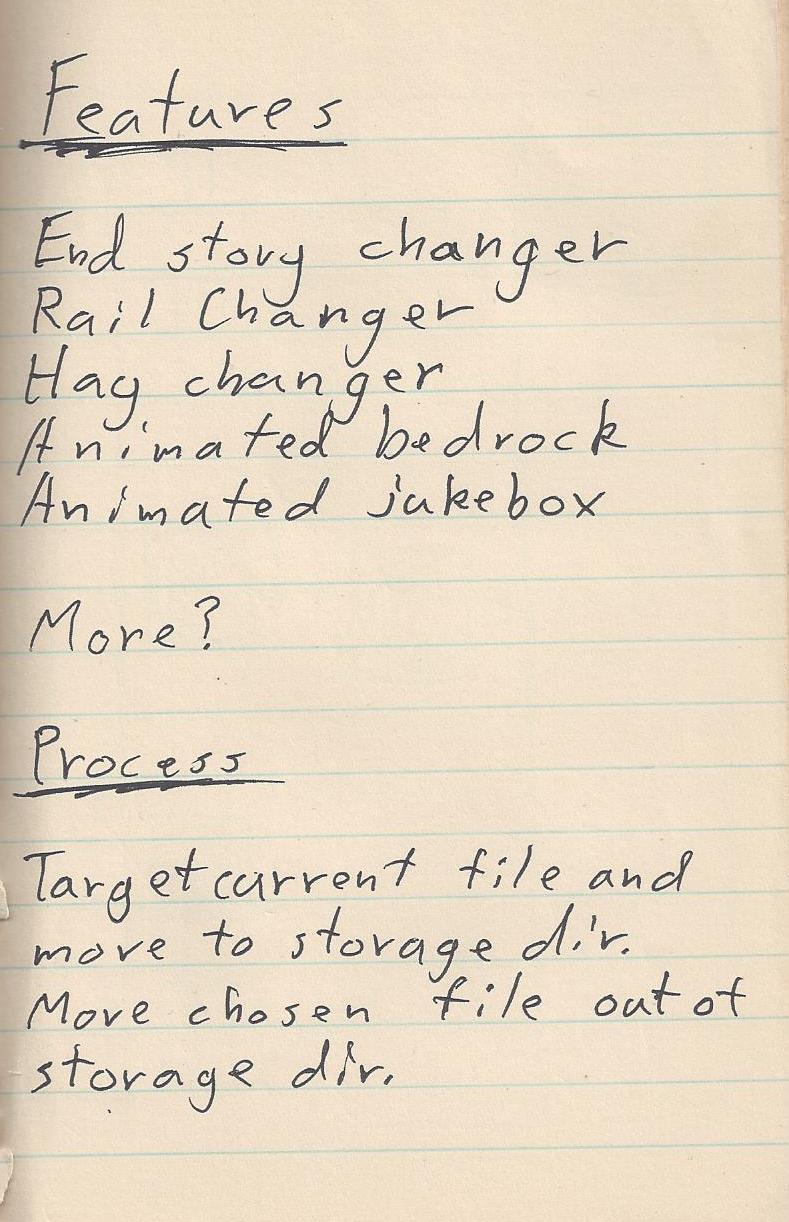 Features
End story changer
Rail Changer
Hay changer
Animated bedrock
Animated jukebox
More?
Process
Target current file and
move to storage dir.
Move chosen file out of
storage dir.